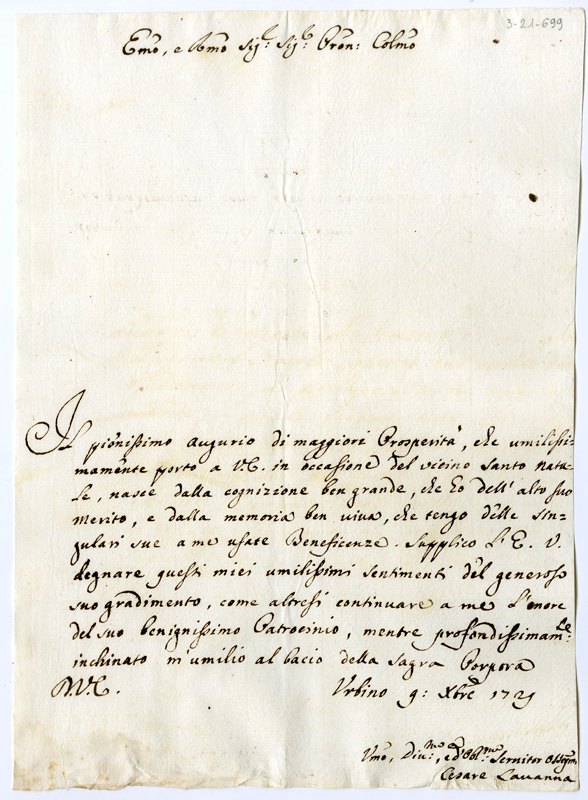 3-21-699
Emo, e Rmo Sigr: Sigr: Pron: Colmo
Il pienissimo augurio di maggiori Prosperità, che umilissi-
mamente porto a V.E. in occasione del vicino Santo Nata-
le, nasce dalla cognizione ben grande, che hò dell' alto suo
merito, e dalla memoria ben viva, che tengo delle sin-
gulari sue a me usate Beneficenze. Supplico l'E. V.
degnare questi miei umilissimi sentimenti del generoso
suo gradimento, come altresì continuare a me l'onore
del suo benignissimo Patrocinio, mentre profondissimamte:
inchinato m'umilio al bacio della Sagra Porpora
D.V.E. Urbino 9: Xbre 1729
Umo, Divmo:, ed Obbmo: Servitor Osseqm
Cesare Lavanna